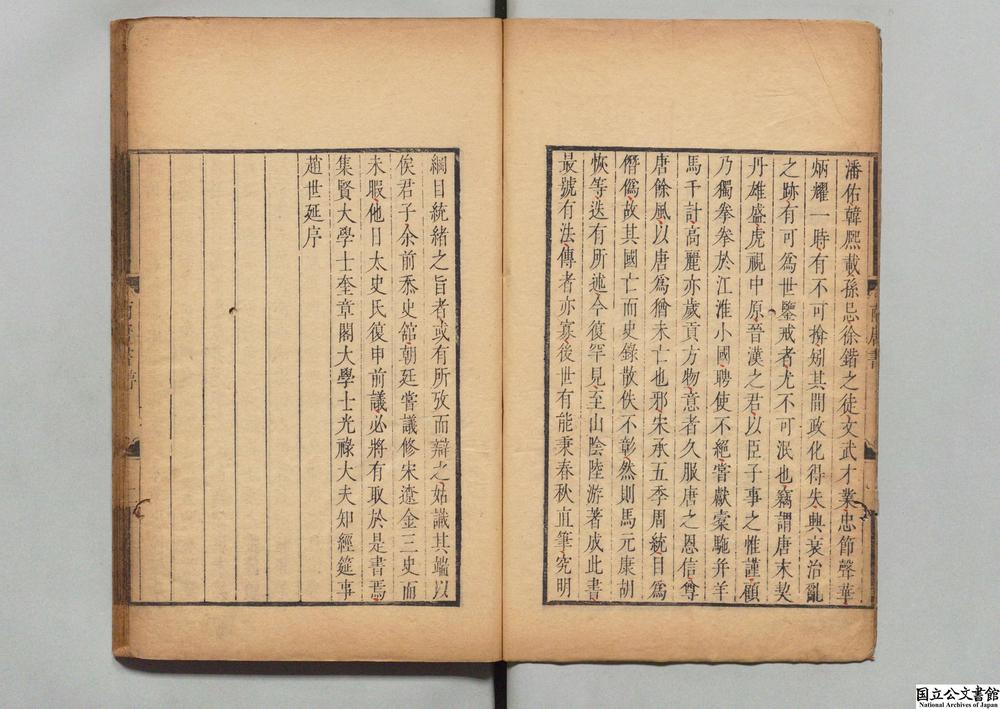 潘佑韓熈載孫忌徐鍇之徒文武才業忠節聲華
炳耀一時有不可揜矧其間政化得失興衰治亂
之跡有可爲世鑒戒者尤不可泯也竊謂唐末契
丹雄盛虎視中原晉漢之君以臣子事之惟謹顧
乃獨拳拳於江淮小國聘使不絕嘗獻橐駞幷羊
馬千計高麗亦歲貢方物意者久服唐之恩信尊
唐餘風以唐爲猶未亡也邪宋承五季周統目爲
僭僞故其國亡而史錄散佚不彰然則馬元康胡
恢等迭有所述今復罕見至山陰陸游著成此書
最號有法傳者亦寡後世有能秉春秋直筆究明
綱目統緒之旨者或有所攷而辯之姑識其端以
俟君子余前忝史館朝廷嘗議修宋遼金三史而
未暇他日太史氏復申前議必將有取於是書焉
集賢大學士奎章閣大學士光祿大夫知經筵事
趙世延序
南唐書
南唐書序
国立公文書館
National Archives of Japan